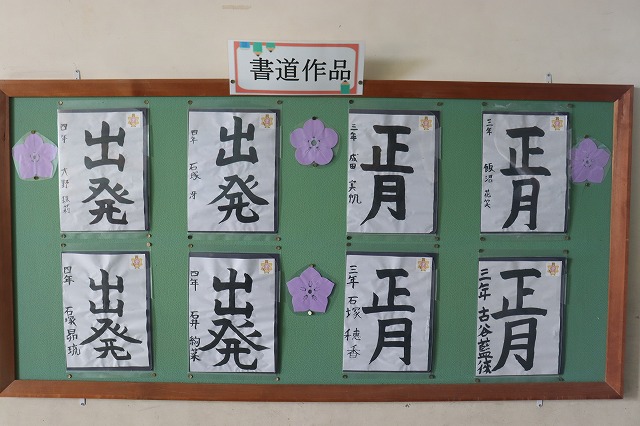 書道作品
出発
四年
出発
四年 石塚 牙
正月
三年 成田 実帆
正月
三年 飯沼 花笑
出発
四年 石塚昴琉
出発
四年 石井 絢菜
正月
三年 石塚 穂香
正月
三年 古谷藍後